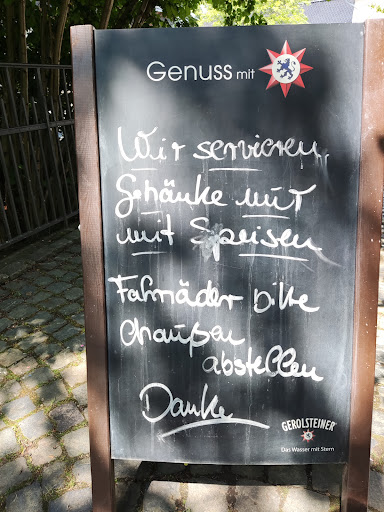 Genuss mit
Wir servieren
Getränke nur
mit Speisen
Fahrräder bitte
draußen
abstellen
Danke
GEROLSTEINER
Das Wasser mit Stern